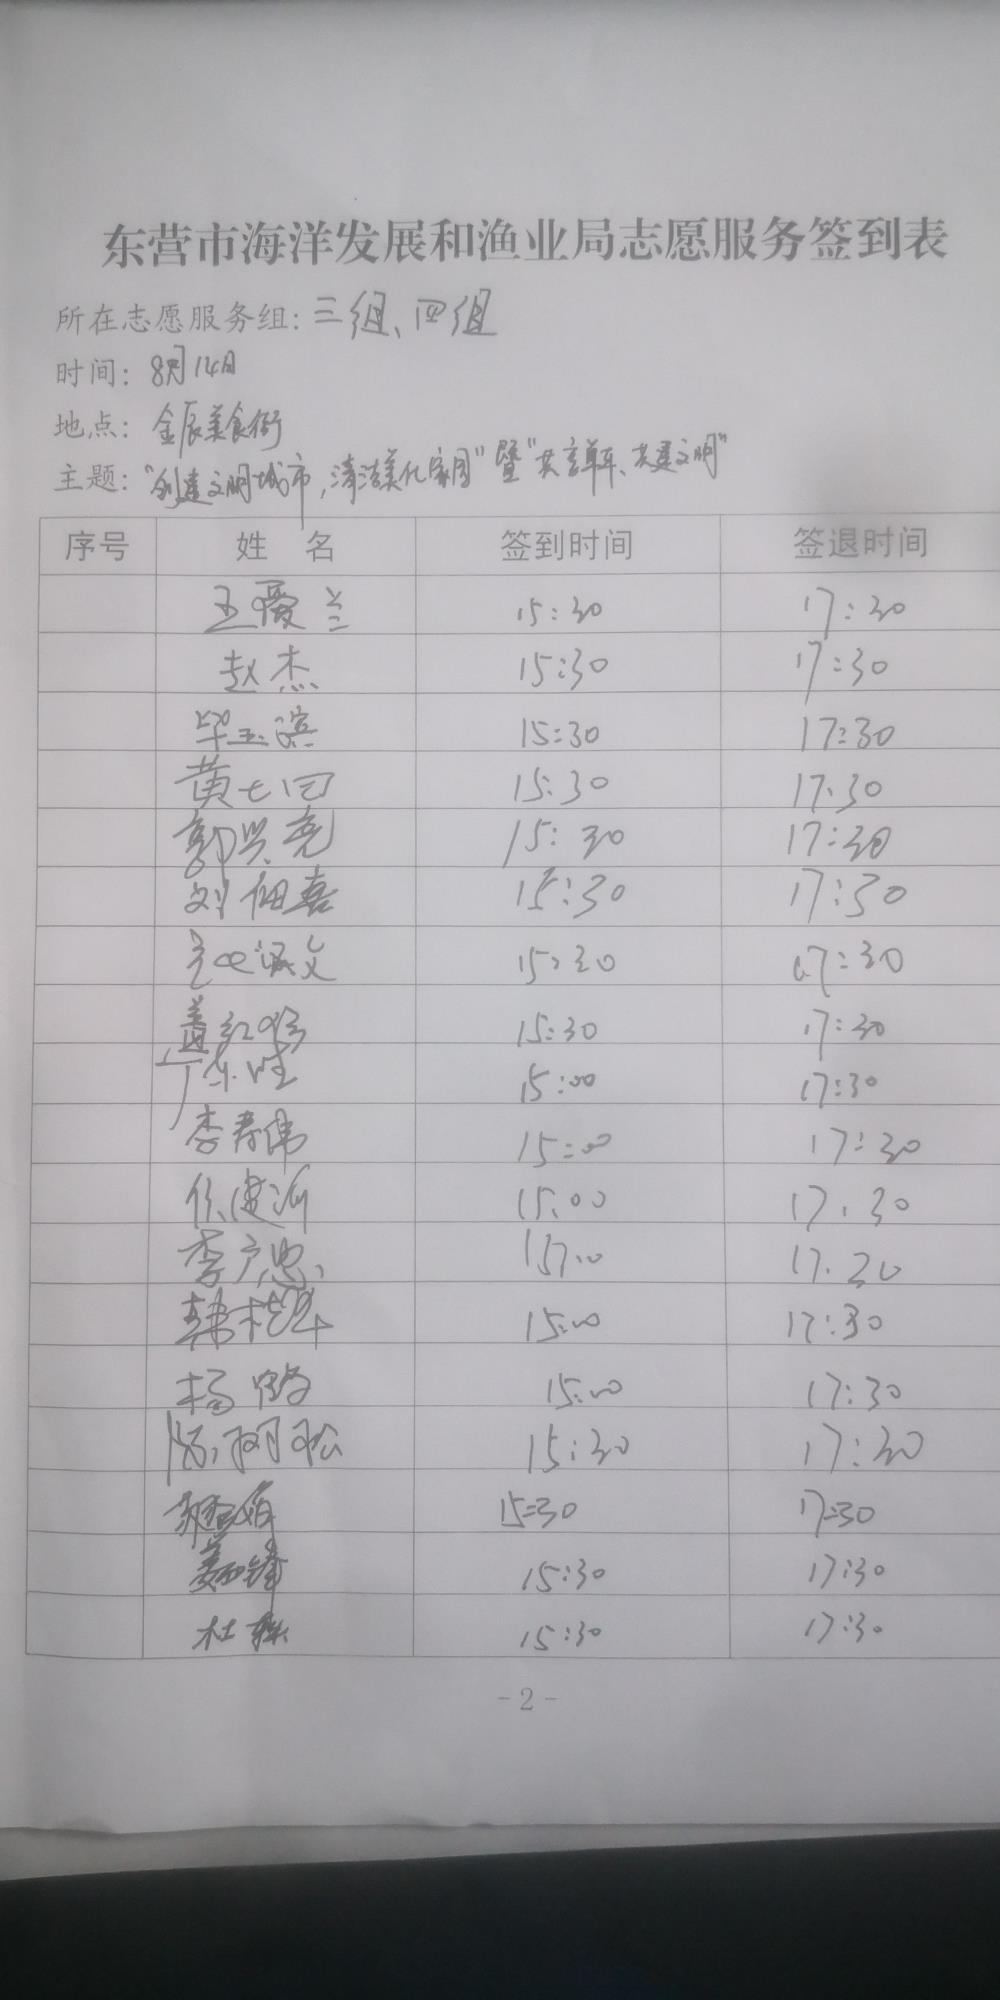 东营市海洋发展和渔业局志愿服务签到表
所在志愿服务组：三组、四组
时间：8月14日
地点：金辰美食街
主题："创建文明城市，清洁美化家园"暨"共享单车、共建文明"
序号 姓 名 签到时间 签退时间
王爱兰 15:30 17:30
赵杰 15:30 17:30
毕玉滨 15:30 17:30
黄七回 15:30 17:30
郭兴尧 15:30 17:30
刘佃喜 15:30 17:30
15:30 17:30
盖红 15:30 17:30
15:00 17:30
李寿伟 15:00 17:30
任建 15:00 17:30
李广忠 17:30
韩 15:00 17:30
杨鹤 15:00 17:30
陈树松 15:30 17:30
15:30 17:30
姜 锋 15:30 17:30
杜 15:30 17:30
- 2 -